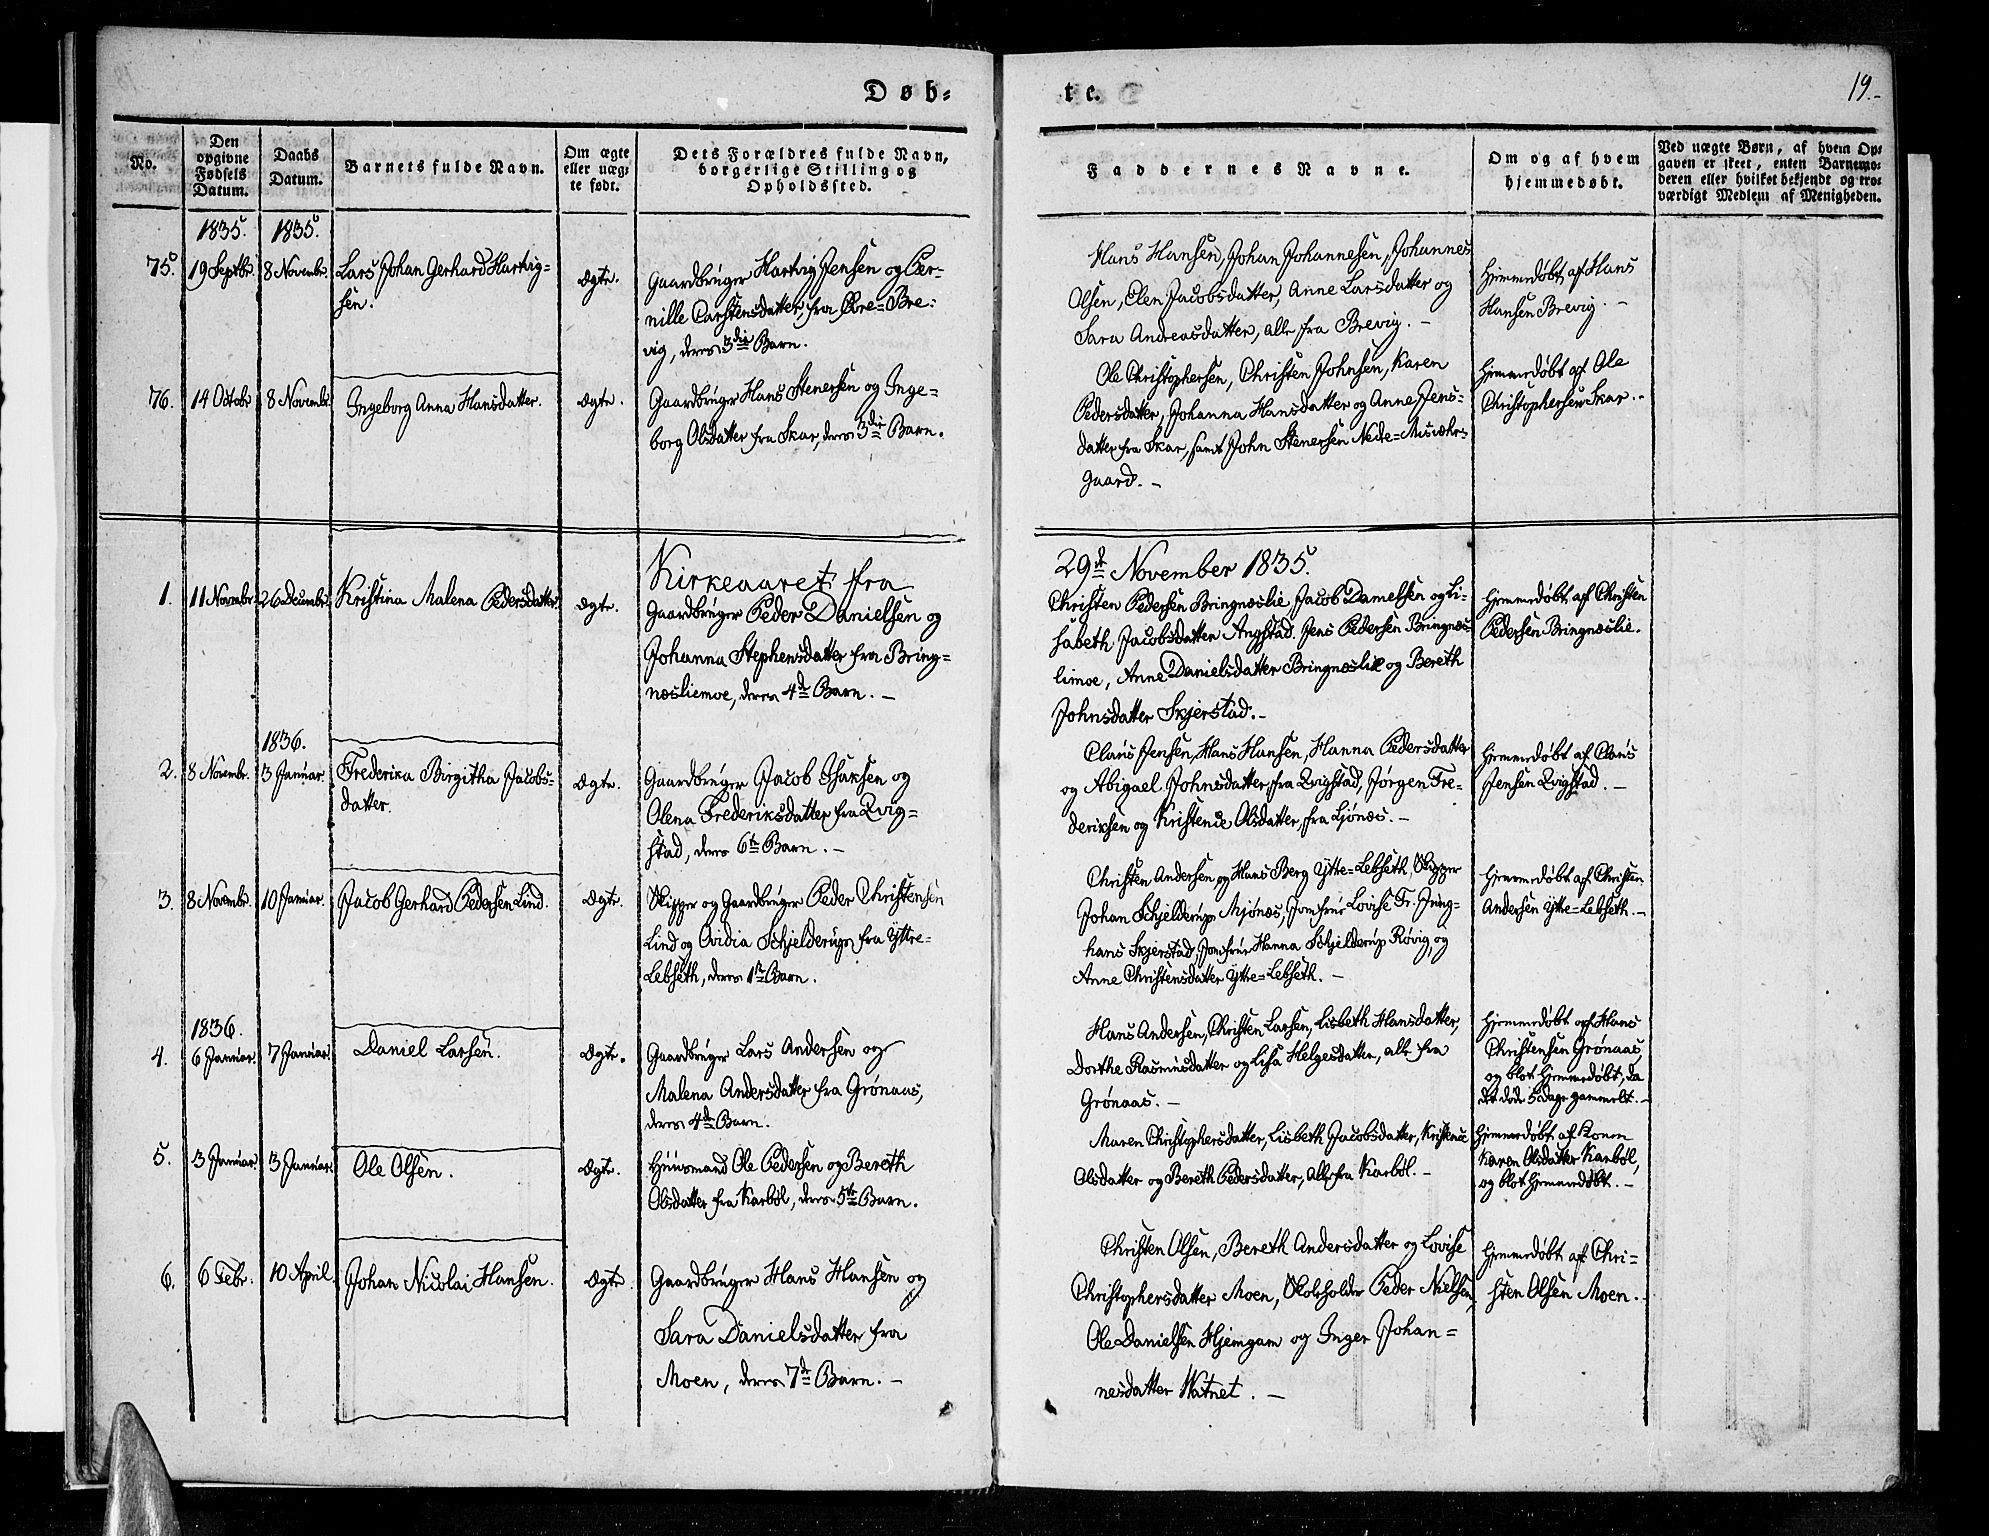 Døb=
te.
19.-
No.
Den
opgivne
Fødsels
Datum.
Daabs
Datum.
Barnets fulde Navn.
Om ægte
eller uæg=
te født.
Dets Forældres fulde Navn,
borgerlige Stilling og
Opholdssted.
Faddernes Navne.
Om og af hvem
hjemmedøbt.
Ved uægte Børn, af hvem Op=
gaven er skeet, enten Barnemo=
deren eller hvilket bekjendt og tro=
værdigt Medlem af Menigheden.
1835. 1835.
75. 19 Septbr. 8 Novembr.
Lars Johan Gerhard Hartvig=
sen.
Ægte.
Gaardbruger Hartvig Jensen og Per=
nille Carstensdatter, fra Øvre=Bre=
vig, deres 3die Barn.
Hans Hansen, Johan Johannesen, Johannes
Olsen, Elen Jacobsdatter, Anne Larsdatter og
Sara Andreasdatter, alle fra Brevig. -
Hjemmedøbt af Hans
Hansen Brevig. -
76. 14 Octobr. 8 Novembr.
Ingeborg Anna Hansdatter.
Ægte.
Gaardbruger Hans Stenersen og Inge=
borg Olsdatter fra Skar, deres 3die Barn.
Ole Christophersen, Christen Johnsen, Karen
Pedersdatter, Johanna Hansdatter og Anne Jens=
datter fra Skar, samt John Stenersen Nede=Misvær=
gaard. -
Hjemmedøbt af Ole
Christophersen Skar. -
Kirkeaaret fra
29de November 1835.
1. 11 Novembr. 26 Decembr.
Kristina Malena Pedersdatter.
Ægte.
Gaardbruger Peder Danielsen og
Johanna Stephensdatter fra Bring=
næsliemoe, deres 4de Barn. -
Christen Pedersen Bringnæslie, Jacob Danielsen og Li=
sabeth Jacobsdatter Angstad. Jens Pedersen Bringnæs=
limoe, Anne Danielsdatter Bringnæslie og Bereth
Johnsdatter Skjerstad. -
Hjemmedøbt af Christen
Pedersen Bringnæslie.
1836.
2. 8 Novembr. 3 Januar.
Frederika Birgitha Jacobs=
datter.
Ægte.
Gaardbruger Jacob Isaksen og
Olena Frederiksdatter fra Qvig=
stad, deres 6te Barn. -
Claus Jensen, Hans Hansen, Hanna Pedersdatter
og Abigael Johnsdatter, fra Qvigstad, Jørgen Fre=
deriksen og Kristence Olsdatter, fra Ljönæs. -
Hjemmedøbt af Claus
Jensen Qvigstad. -
3. 8 Novembr. 10 Januar.
Jacob Gerhard Pedersen Lind.
Ægte.
Skipper og Gaardbruger Peder Christensen
Lind og Ovidia Schjelderup fra Yttre=
Lebseth, deres 1te Barn.
Christen Andersen og Hans Berg Ytte=Lebseth, Skipper
Johan Schjelderup Mjönæs, Jomfrue Lovise Fr. Jung=
hans Skjerstad, Jomfrue Hanna Schjelderup Røvig, og
Anne Christensdatter Ytte=Lebseth. -
Hjemmedøbt af Christen
Andersen Ytte=Lebseth. -
1836.
4. 6 Januar. 7 Januar.
Daniel Larsen.
Ægte.
Gaardbruger Lars Andersen og
Malena Andersdatter fra Grönaas,
deres 4de Barn.
Hans Andersen, Christen Larsen, Lisbeth Hansdatter,
Dorthe Rasmusdatter og Lisa Helgesdatter, alle fra
Grönaas. -
Hjemmedøbt af Hans
Christensen Grönaas,
og blot hjemmedøbt, da
det døde 5 dage gammelt. -
5. 3 Januar. 3 Januar.
Ole Olsen.
Ægte.
Huusmand Ole Pedersen og Bereth
Olsdatter fra Karböl, deres 5te Barn.
Maren Christophersdatter, Lisbeth Jacobsdatter, Kristence
Olsdatter og Bereth Pedersdatter, alle fra Karböl. -
Hjemmedøbt af Konen
Karen Olsdatter Karböl,
og blot hjemmedøbt. -
6. 6 Febr. 10 April.
Johan Nicolai Hansen.
Ægte.
Gaardbruger Hans Hansen og
Sara Danielsdatter fra
Moen, deres 7de Barn. -
Christen Olsen, Bereth Andersdatter og Lovise
Christophersdatter Moen, Skoleholder Peder Nielsen,
Ole Danielsen Hjemgam og Inger Johan=
nesdatter Watnet. -
Hjemmedøbt af Chri=
sten Olsen Moen. -